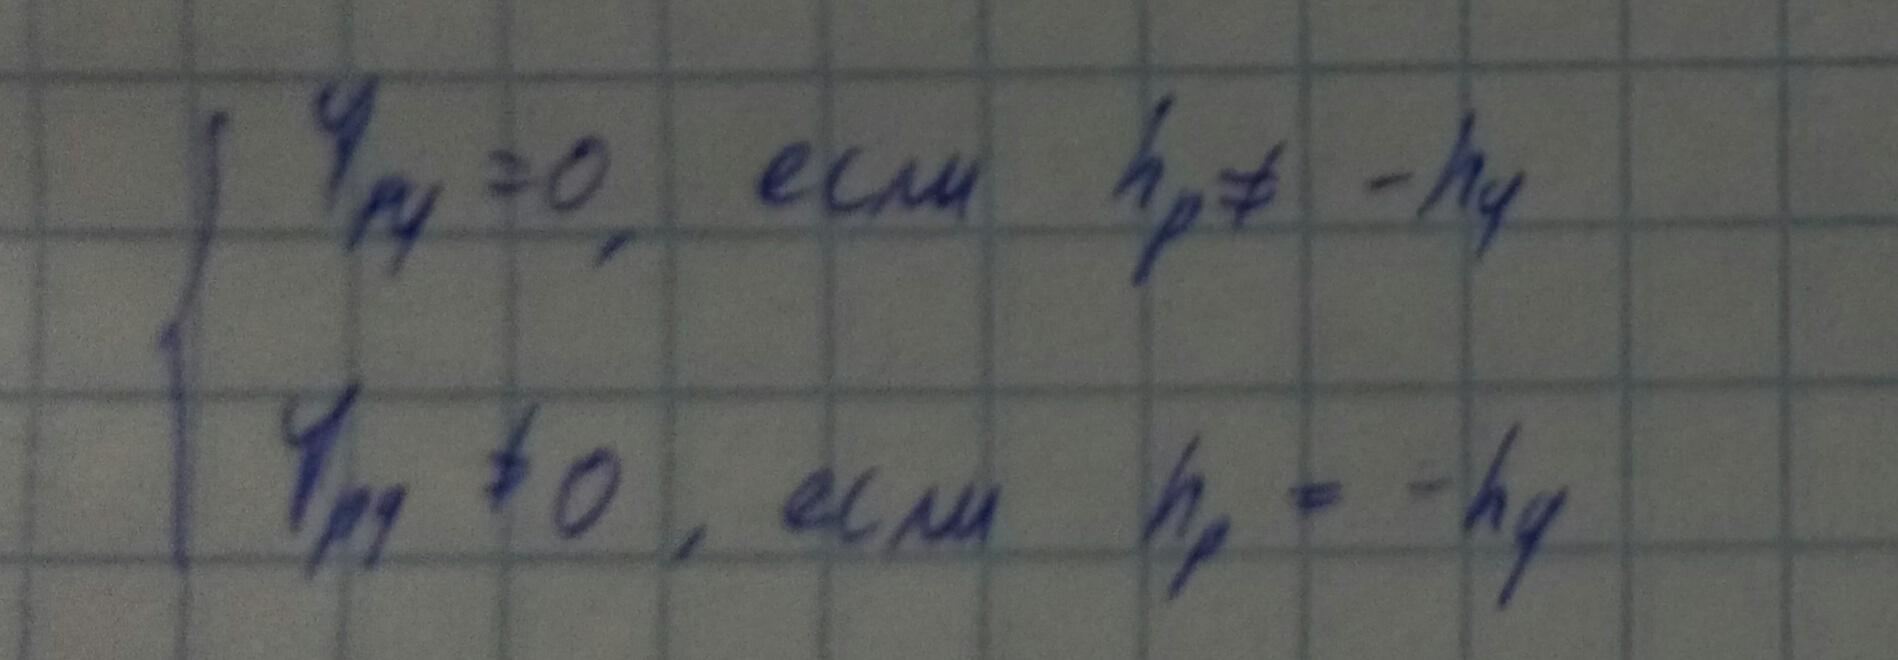 φ_pq = 0, если h_p ≠ -h_q
φ_pq ≠ 0, если h_p = -h_q